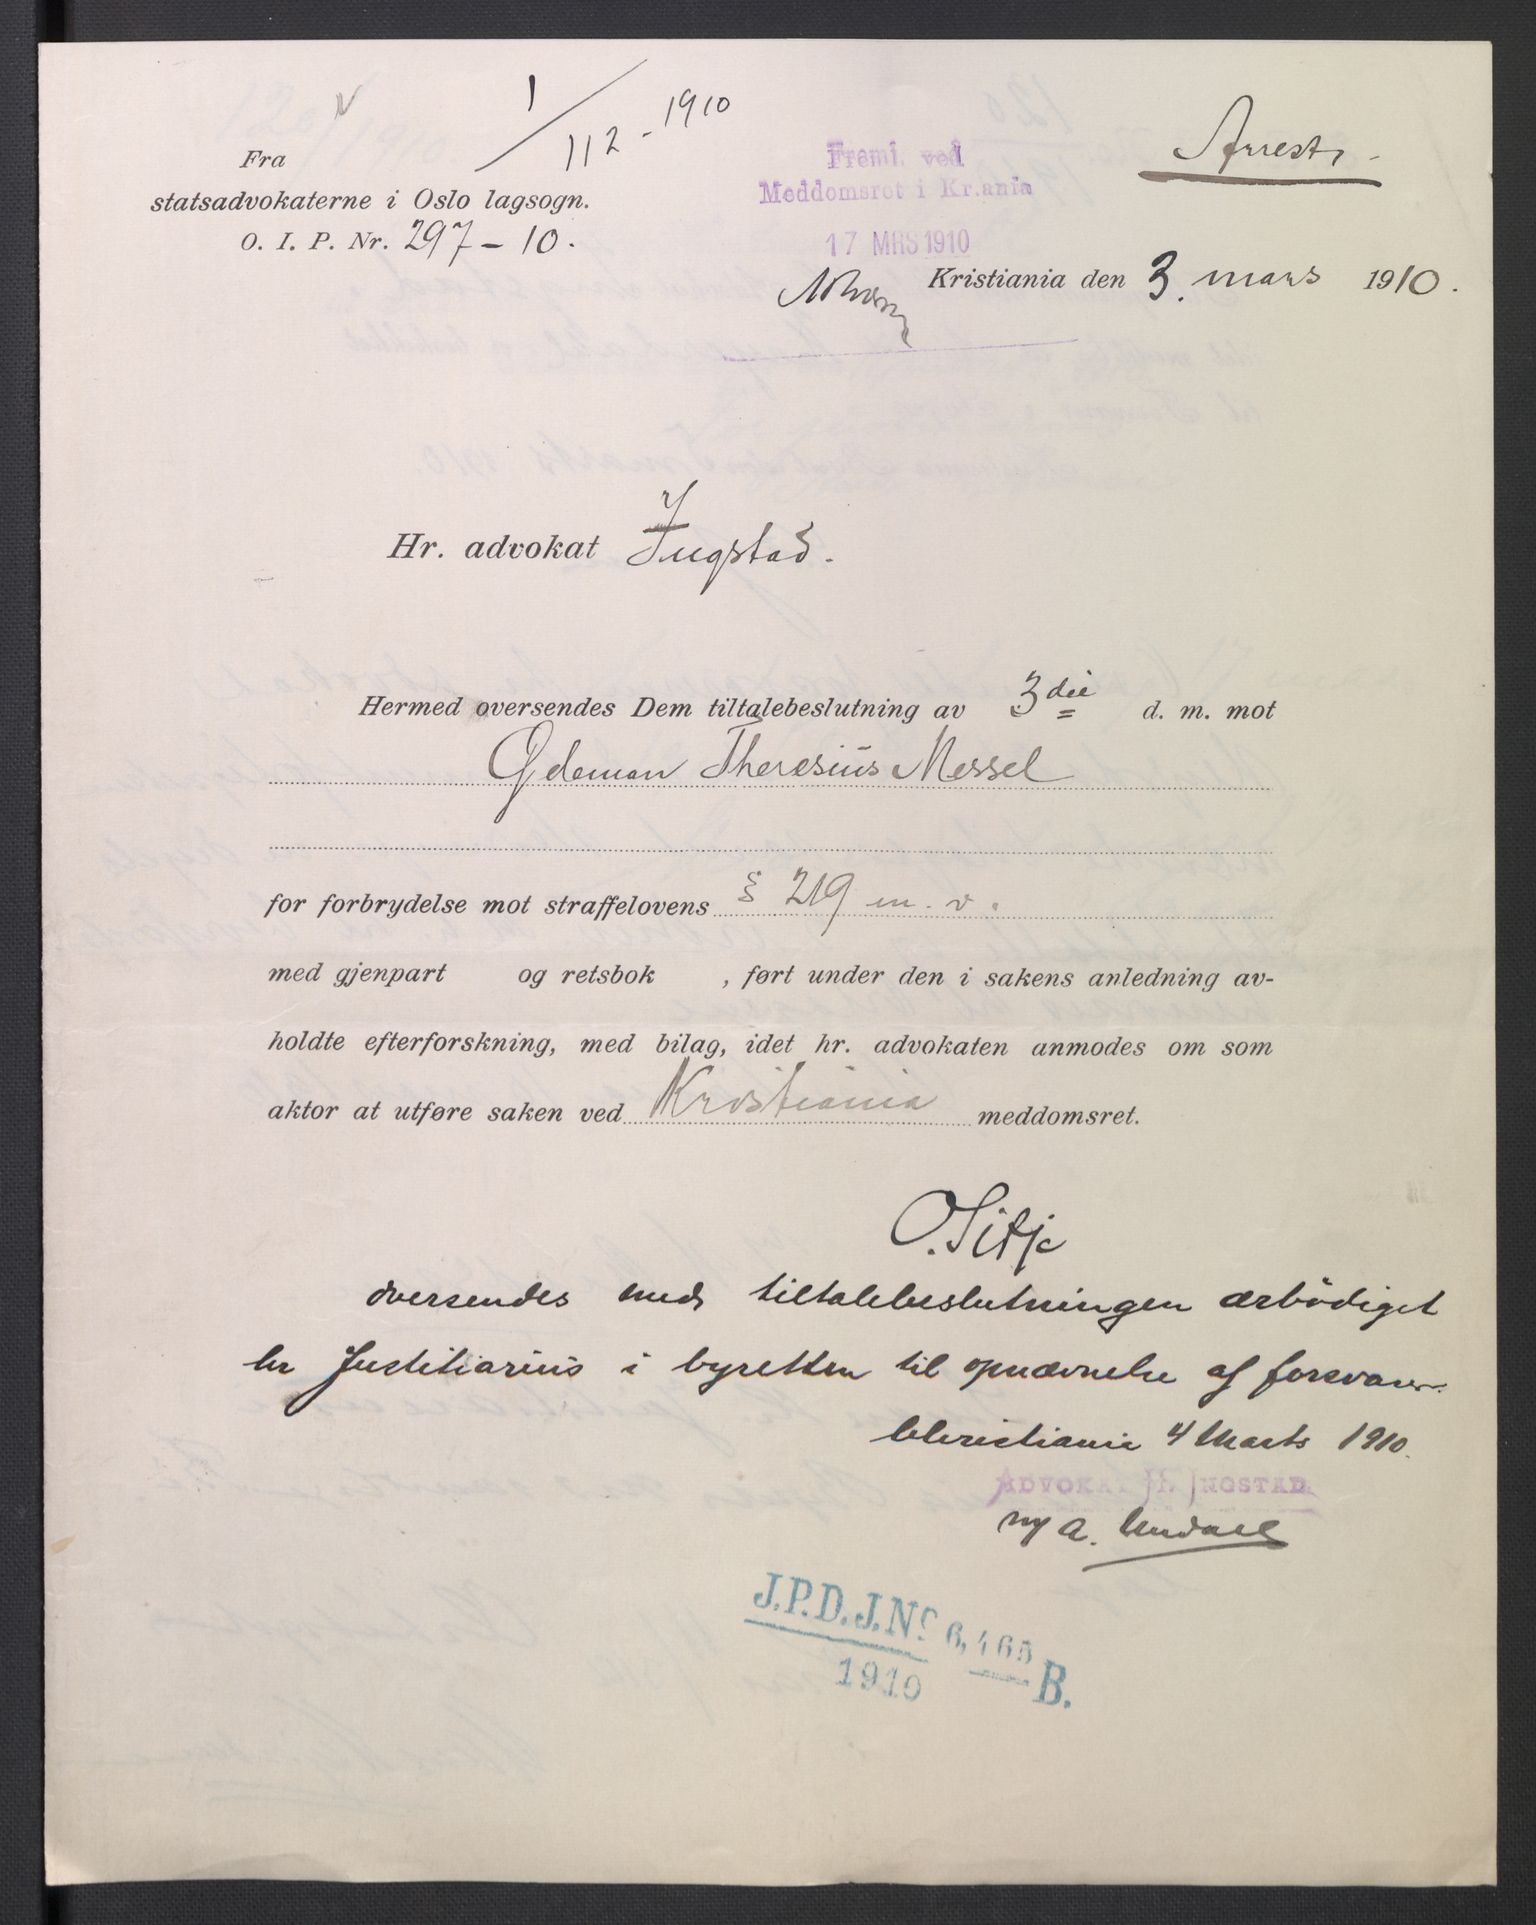 1/112-1910
Arrest.
Fra
statsadvokaterne i Oslo lagsogn.
O. I. P. Nr. 297-10.
Freml. ved
Meddomsret i Kr.ania
17 MRS 1910
Kristiania den 3. mars 1910.
Hr. advokat Ingstad.
Hermed oversendes Dem tiltalebeslutning av 3die d. m. mot
Theresius Messel
for forbrydelse mot straffelovens § 219 m. v.
med gjenpart og retsbok , ført under den i sakens anledning av-
holdte efterforskning, med bilag, idet hr. advokaten anmodes om som
aktor at utføre saken ved Kristiania meddomsret.
O.
oversendes med tiltalebeslutningen ærbödigst
hr Justitiarius i byretten til opnævnelse af forsvarer.
Christiania 4 Marts 1910.
ADVOKAT H. INGSTAD.
A.
J.P.D.J.No 6,465 B.
1910